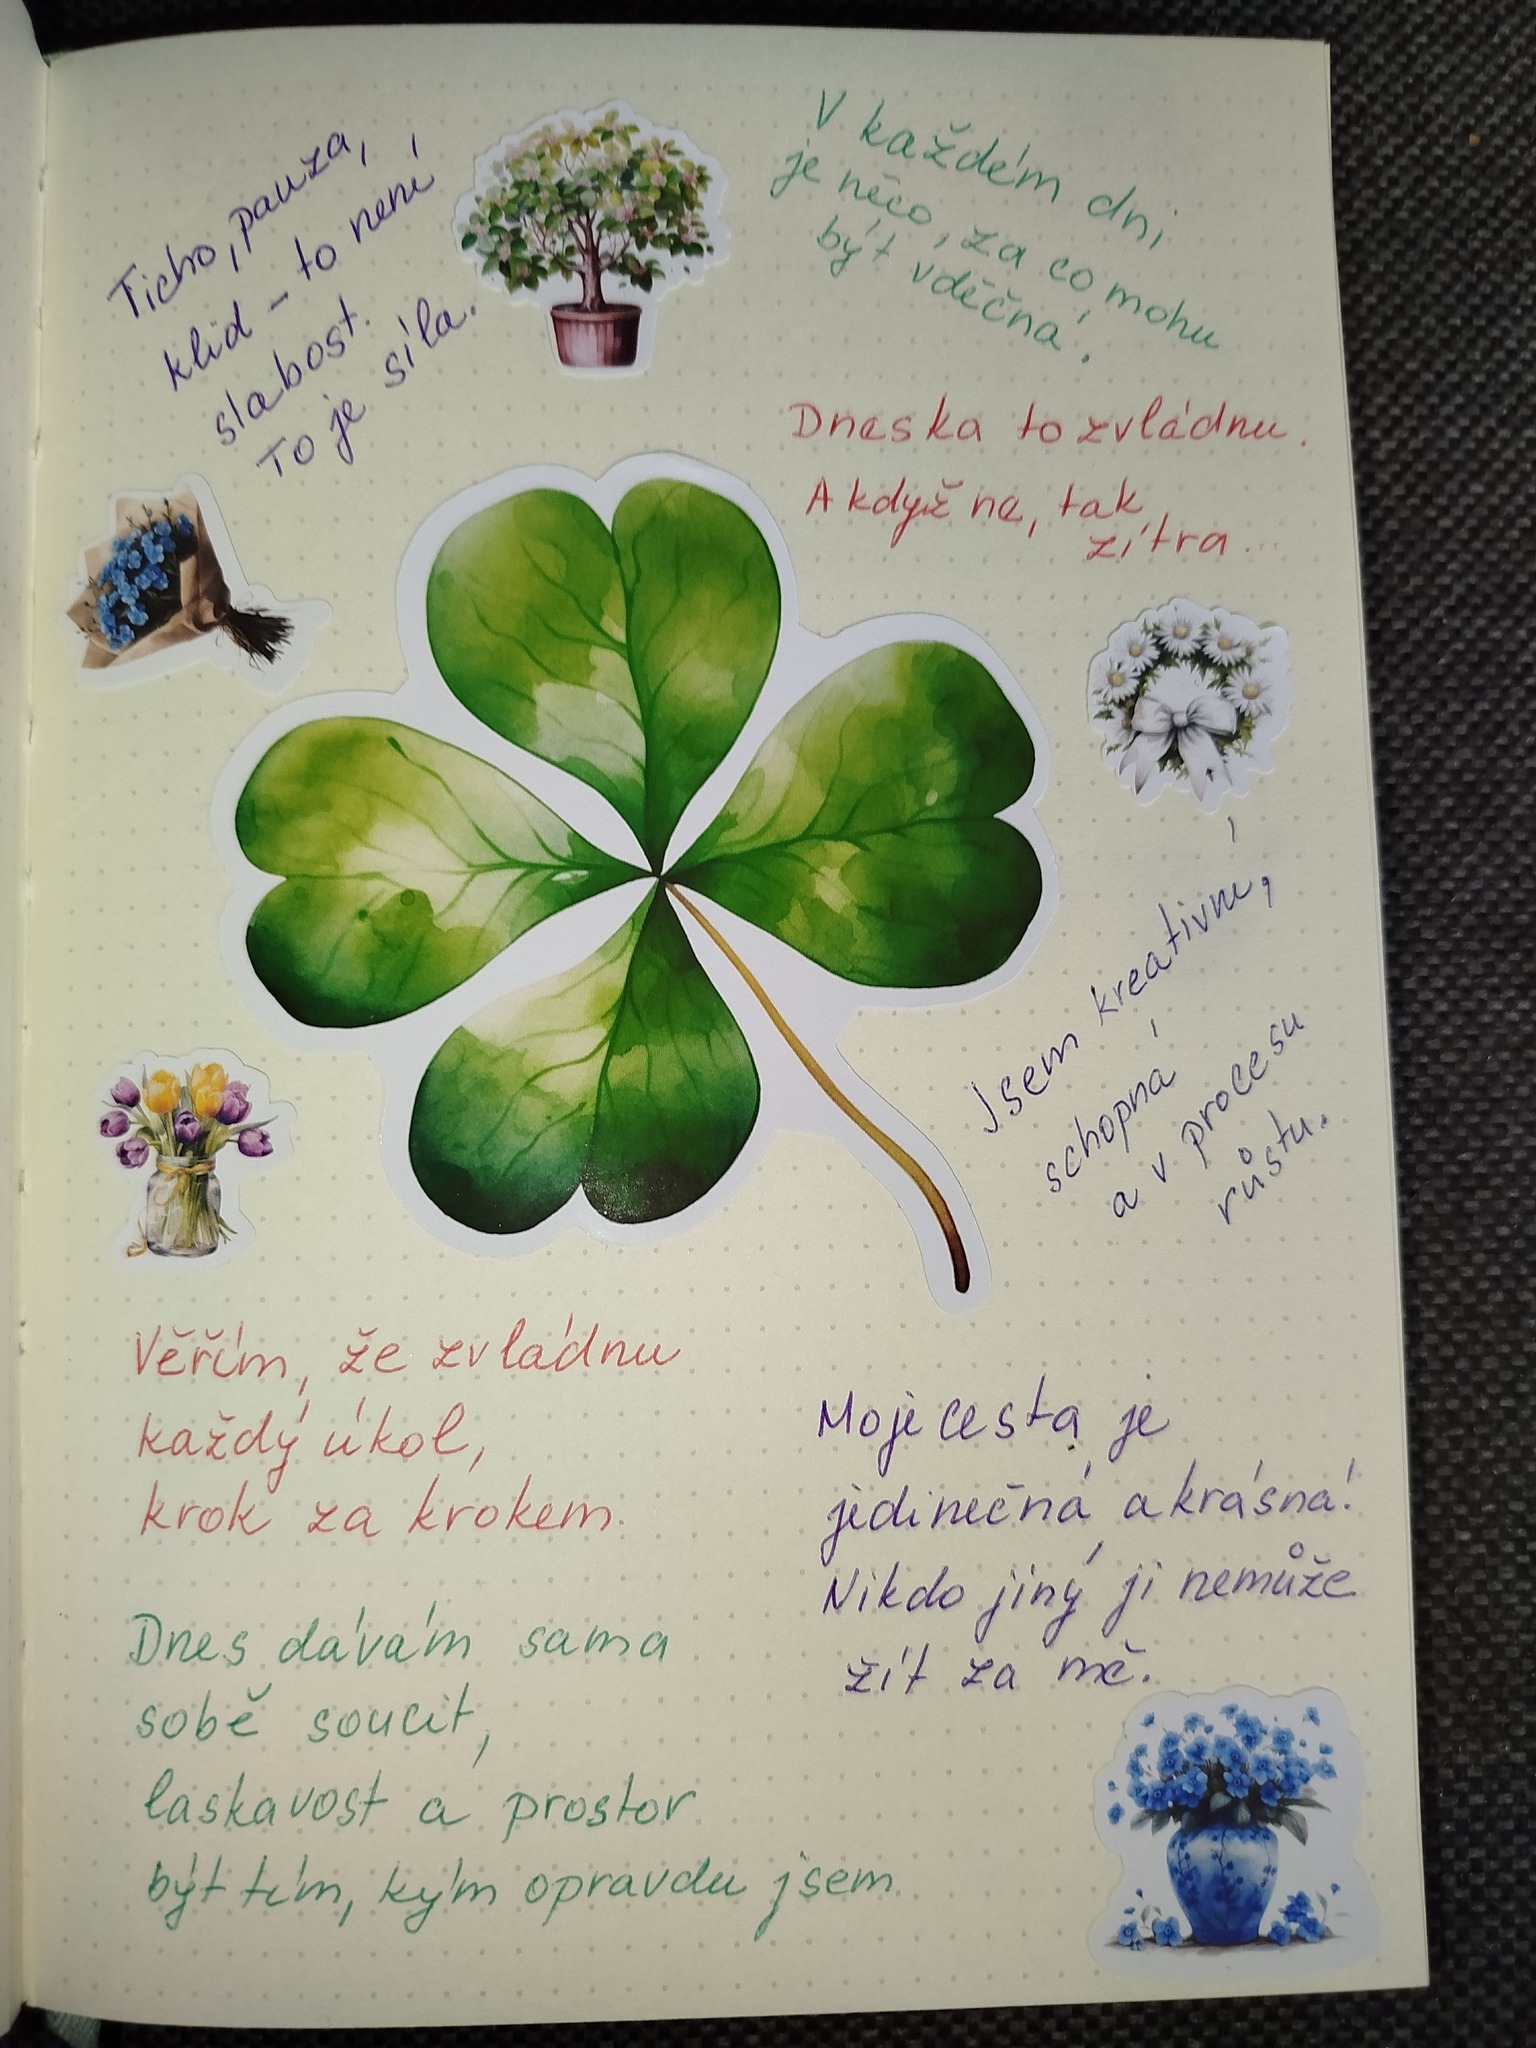 Ticho, pauza,
klid - to není
slabost.
To je síla.
V každém dni
je něco, za co mohu
být vděčná.
Dneska to zvládnu.
A když ne, tak
zítra...
Jsem kreativní,
schopná
a v procesu
růstu.
Věřím, že zvládnu
každý úkol,
krok za krokem.
Moje cesta je
jedinečná a krásná!
Nikdo jiný ji nemůže
žít za mě.
Dnes dávám sama
sobě soucit,
laskavost a prostor
být tím, kým opravdu jsem